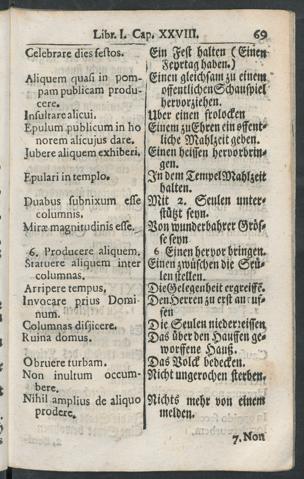 Libr. I. Cap. XXVIII. 69
Celebrare dies festos.
Ein Fest halten (Einen
Feyrtag haben.)
Aliquem quasi in pom-
pam publicam produ-
cere.
Einen gleichsam zu einem
offentlichen Schauspiel
hervorziehen.
Insultare alicui.
Uber einen frolocken
Epulum publicum in ho
norem alicujus dare.
Einem zu Ehren ein offent-
liche Mahlzeit geben.
Jubere aliquem exhiberi.
Einen heissen hervorbrin-
gen.
Epulari in templo.
In dem Tempel Mahlzeit
halten.
Duabus subnixum esse
columnis.
Mit 2. Seulen unter-
stützt seyn.
Miræ magnitudinis esse.
Von wunderbahrer Grös-
se seyn
6. Producere aliquem.
6 Einen hervor bringen.
Statuere aliquem inter
columnas.
Einen zwüschen die Seu-
len stellen.
Arripere tempus,
Die Gelegenheit ergreiffē.
Invocare prius Domi-
num.
Den Herren zu erst anruf-
fen
Columnas disjicere.
Die Seulen niederreissen
Ruina domus.
Das über den Hauffen ge-
worffene Hauß.
Obruere turbam.
Das Volck bedecken.
Non inultum occum-
bere.
Nicht ungerochen sterben.
Nihil amplius de aliquo
prodere.
Nichts mehr von einem
melden.
7. Non